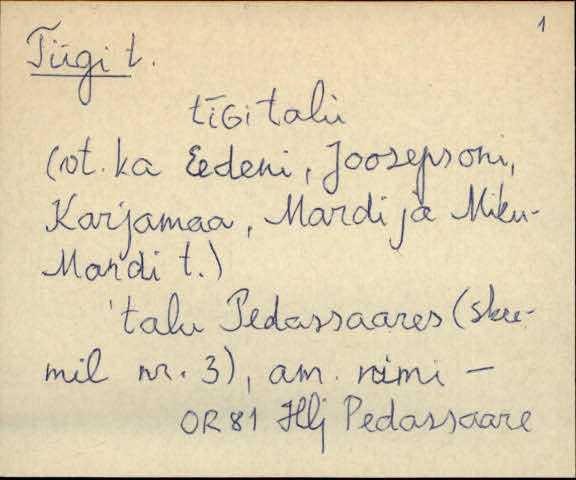 1
Tiigi t.
tīGi talu
(vt. ka Eedeni, Joosepsoni,
Karjamaa, Mardi ja Miku-
Mardi t.)
'talu Pedassaares (skee-
mil nr. 3), am. nimi –
OR 81 Hlj Pedassaare